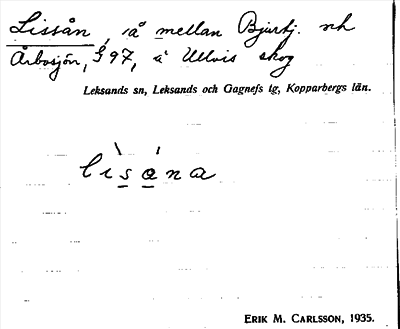 Lissån, å mellan Bjurtj. och
Årbosjön, § 97, å Ullvis skog
Leksands sn, Leksands och Gagnefs tg, Kopparbergs län.
lisana
ERIK M. CARLSSON, 1935.